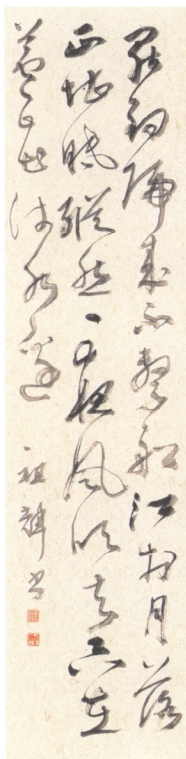 罷釣歸來不繫船江村月落
正堪眠縱然一夜風吹去只在
蘆花淺水邊
祖輝書